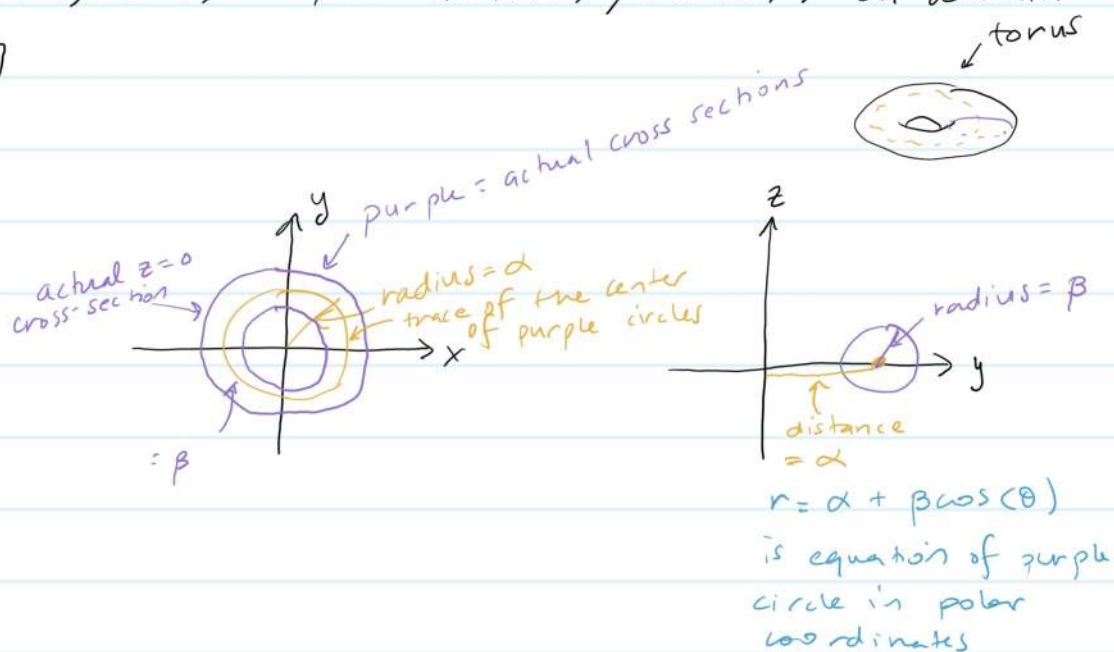 torus
purple = actual cross sections
y
z
actual z=0
cross-section
radius = α
trace of the center
of purple circles
x
radius = β
y
= β
distance
= α
r = α + βcos(θ)
is equation of purple
circle in polar
coordinates